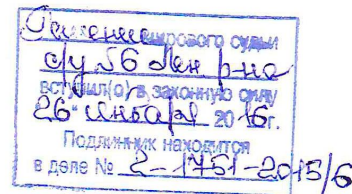 Решение мирового судьи
с/у № 6 Лен р-на
вступил(о) в законную силу
"26" января 2016г.
Подлинник находится
в деле № 2-1751-2015/6